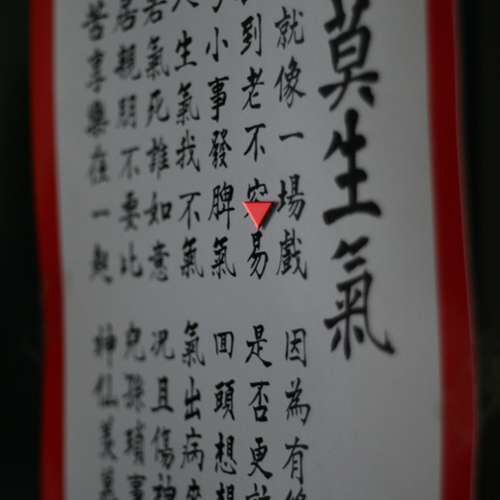 莫生氣
就像一場戲 因為有
到老不容易 是否更
小事發脾氣 回頭想想
人生氣我不氣 氣出病
若氣死誰如意 況且傷神
居親朋不要比 兒孫瑣事
苦享樂在一起 神仙羨慕